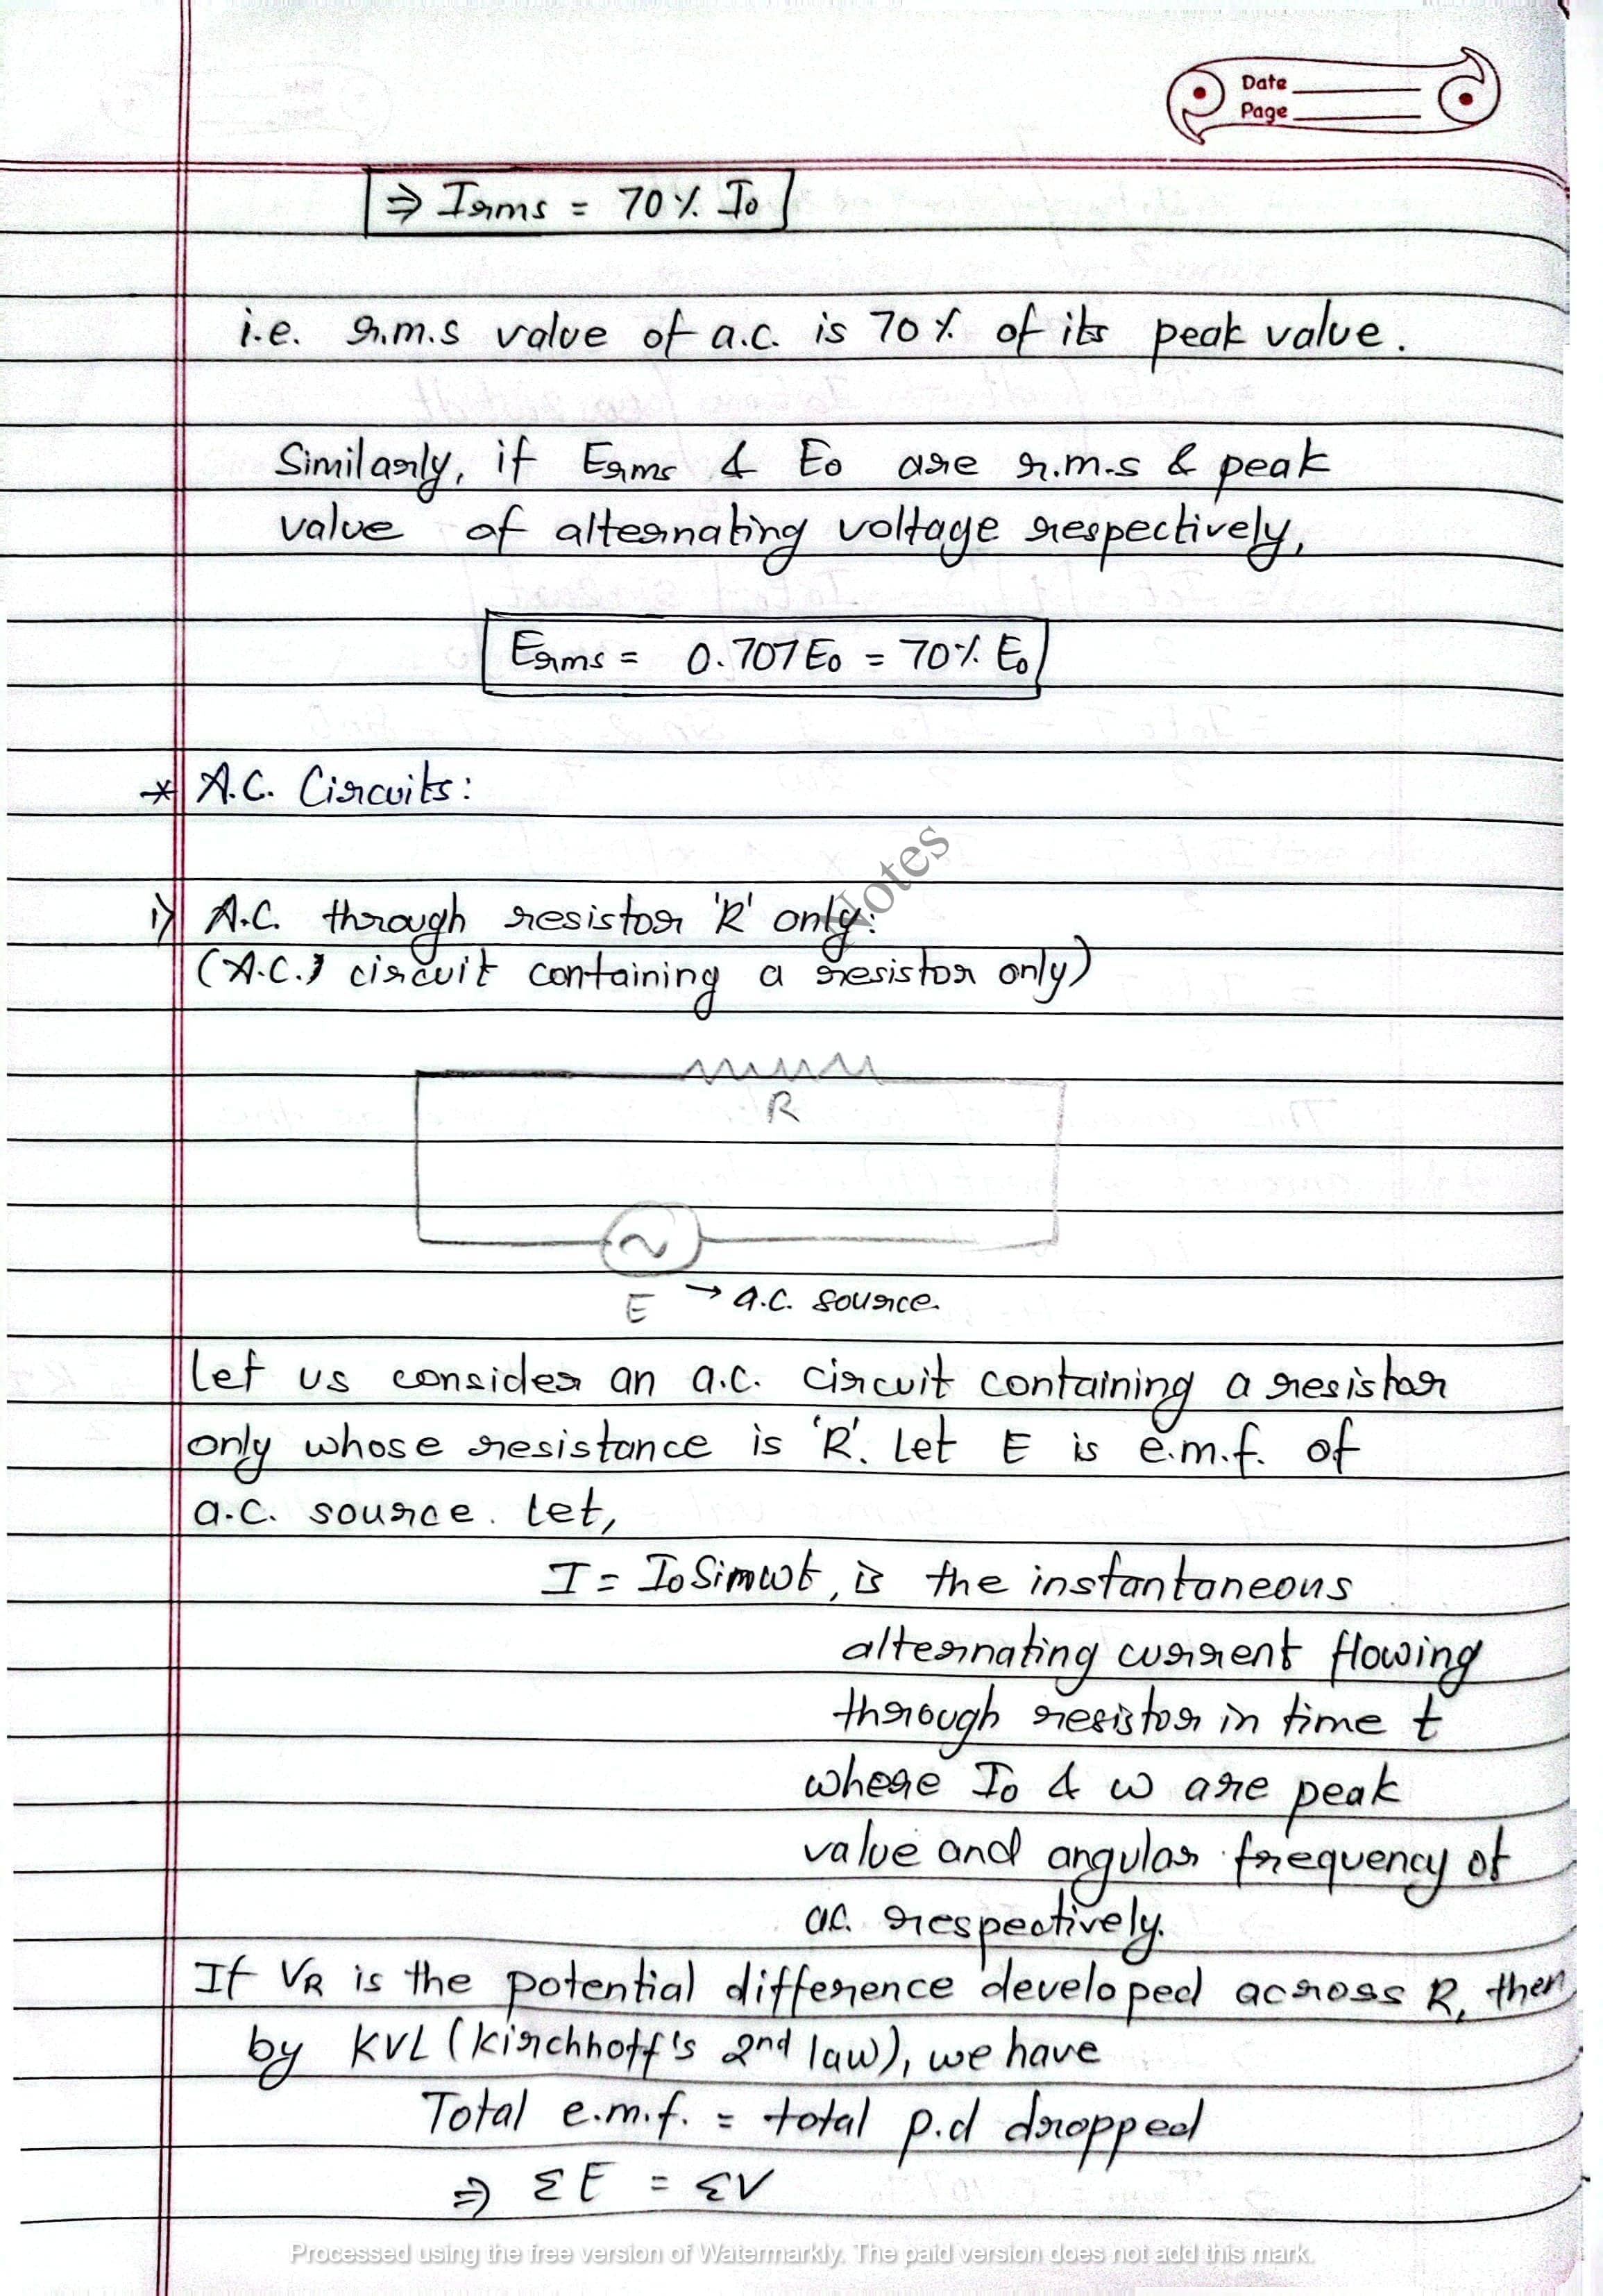 Date
Page
⇒ Irms = 70% I₀
i.e. r.m.s value of a.c. is 70% of its peak value.
Similarly, if Erms & E₀ are r.m.s & peak
value of alternating voltage respectively,
Erms = 0.707E₀ = 70% E₀
* A.C. Circuits:
Notes
i) A.C. through resistor 'R' only:
(A.C.) circuit containing a resistor only)
R
E → a.c. source.
Let us consider an a.c. circuit containing a resistor
only whose resistance is 'R'. Let E is e.m.f. of
a.c. source. Let,
I = I₀ Sinωt, is the instantaneous
alternating current flowing
through resistor in time t
where I₀ & ω are peak
value and angular frequency of
ac. respectively.
If VR is the potential difference developed across R, then
by KVL (Kirchhoff's 2nd law), we have
Total e.m.f. = total p.d dropped
⇒ ΣE = ΣV
Processed using the free version of Watermarkly. The paid version does not add this mark.